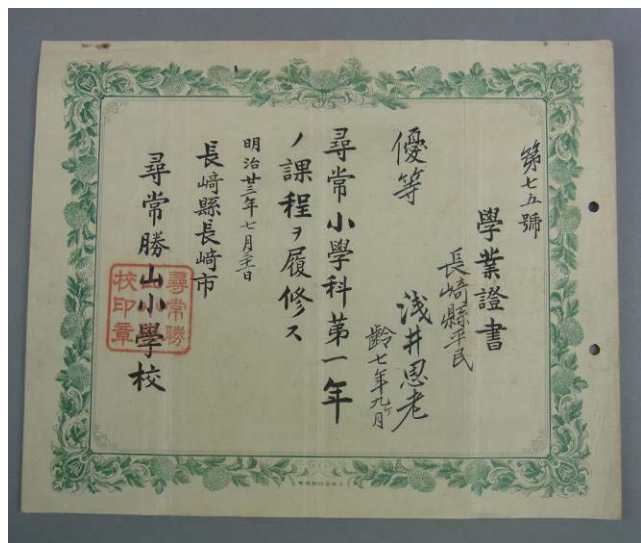 第七五號
學業證書
長﨑縣平民
浅井思老
齢七年九ヶ月
優等
尋常小學科第一年
ノ課程ヲ履修ス
明治廿三年七月三十一日
長﨑縣長﨑市
尋常勝山小學校
尋常勝
山小學
校印章